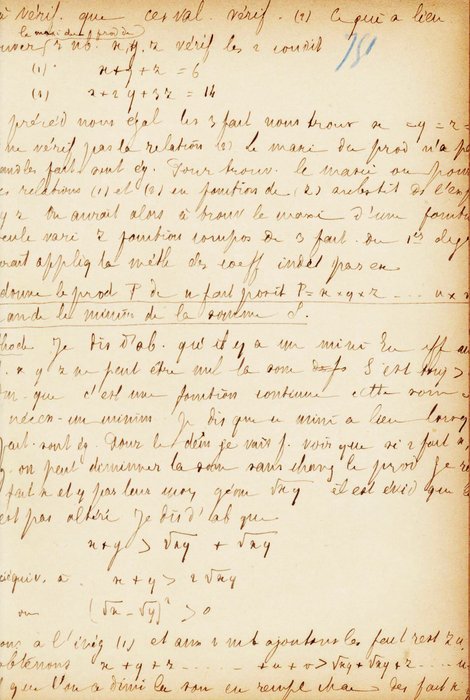 à vérif. que ces val. vérif. (2) ce qui a lieu
le maxi du prod de
ouver 3 nb. x, y, z vérif les 2 condit
751
(1) x + y + z = 6
(2) x + 2y + 3z = 14
précéd nous égal les 3 fact nous trouv x = y = z =
ne vérif pas la relation (2) Le maxi du prod n'a
fact. sont ég. Pour trouv. le maxi on
es relations (1) et (2) en fonction de (z) substit de l'ex
y z On aurait alors à trouv le maxi d'une fonct
eule vari z fonction compos de 3 fact. du 1er deg
rait appliq la méth des coeff indét par ex
donne le prod P de n fact posit P = x y z ... u x v
ande le minim de la somme S.
thode Je dis d'ab. qu'il y a un mini En eff au
x y z ne peut être nul la som S est >
c'est une fonction continue cette som
un minim Je dis que ce mini a lieu lorsq
fact. sont ég. Pour le dém je vais f. voir que si 2 fact
on peut diminuer la som sans chang le prod Je
fact x et y par leur moy géom √xy il est évid que
est pas altéré Je dis d'ab que
x + y > √xy + √xy
équiv. à x + y > 2√xy
ou (√x − √y)² > 0
à l'inég (1) et aux 2 mb ajoutons les fact rest z u
obtenons x + y + z ... + u + v > √xy + √xy + z ... u
que l'on a dimi la som en rempl chac des fact x